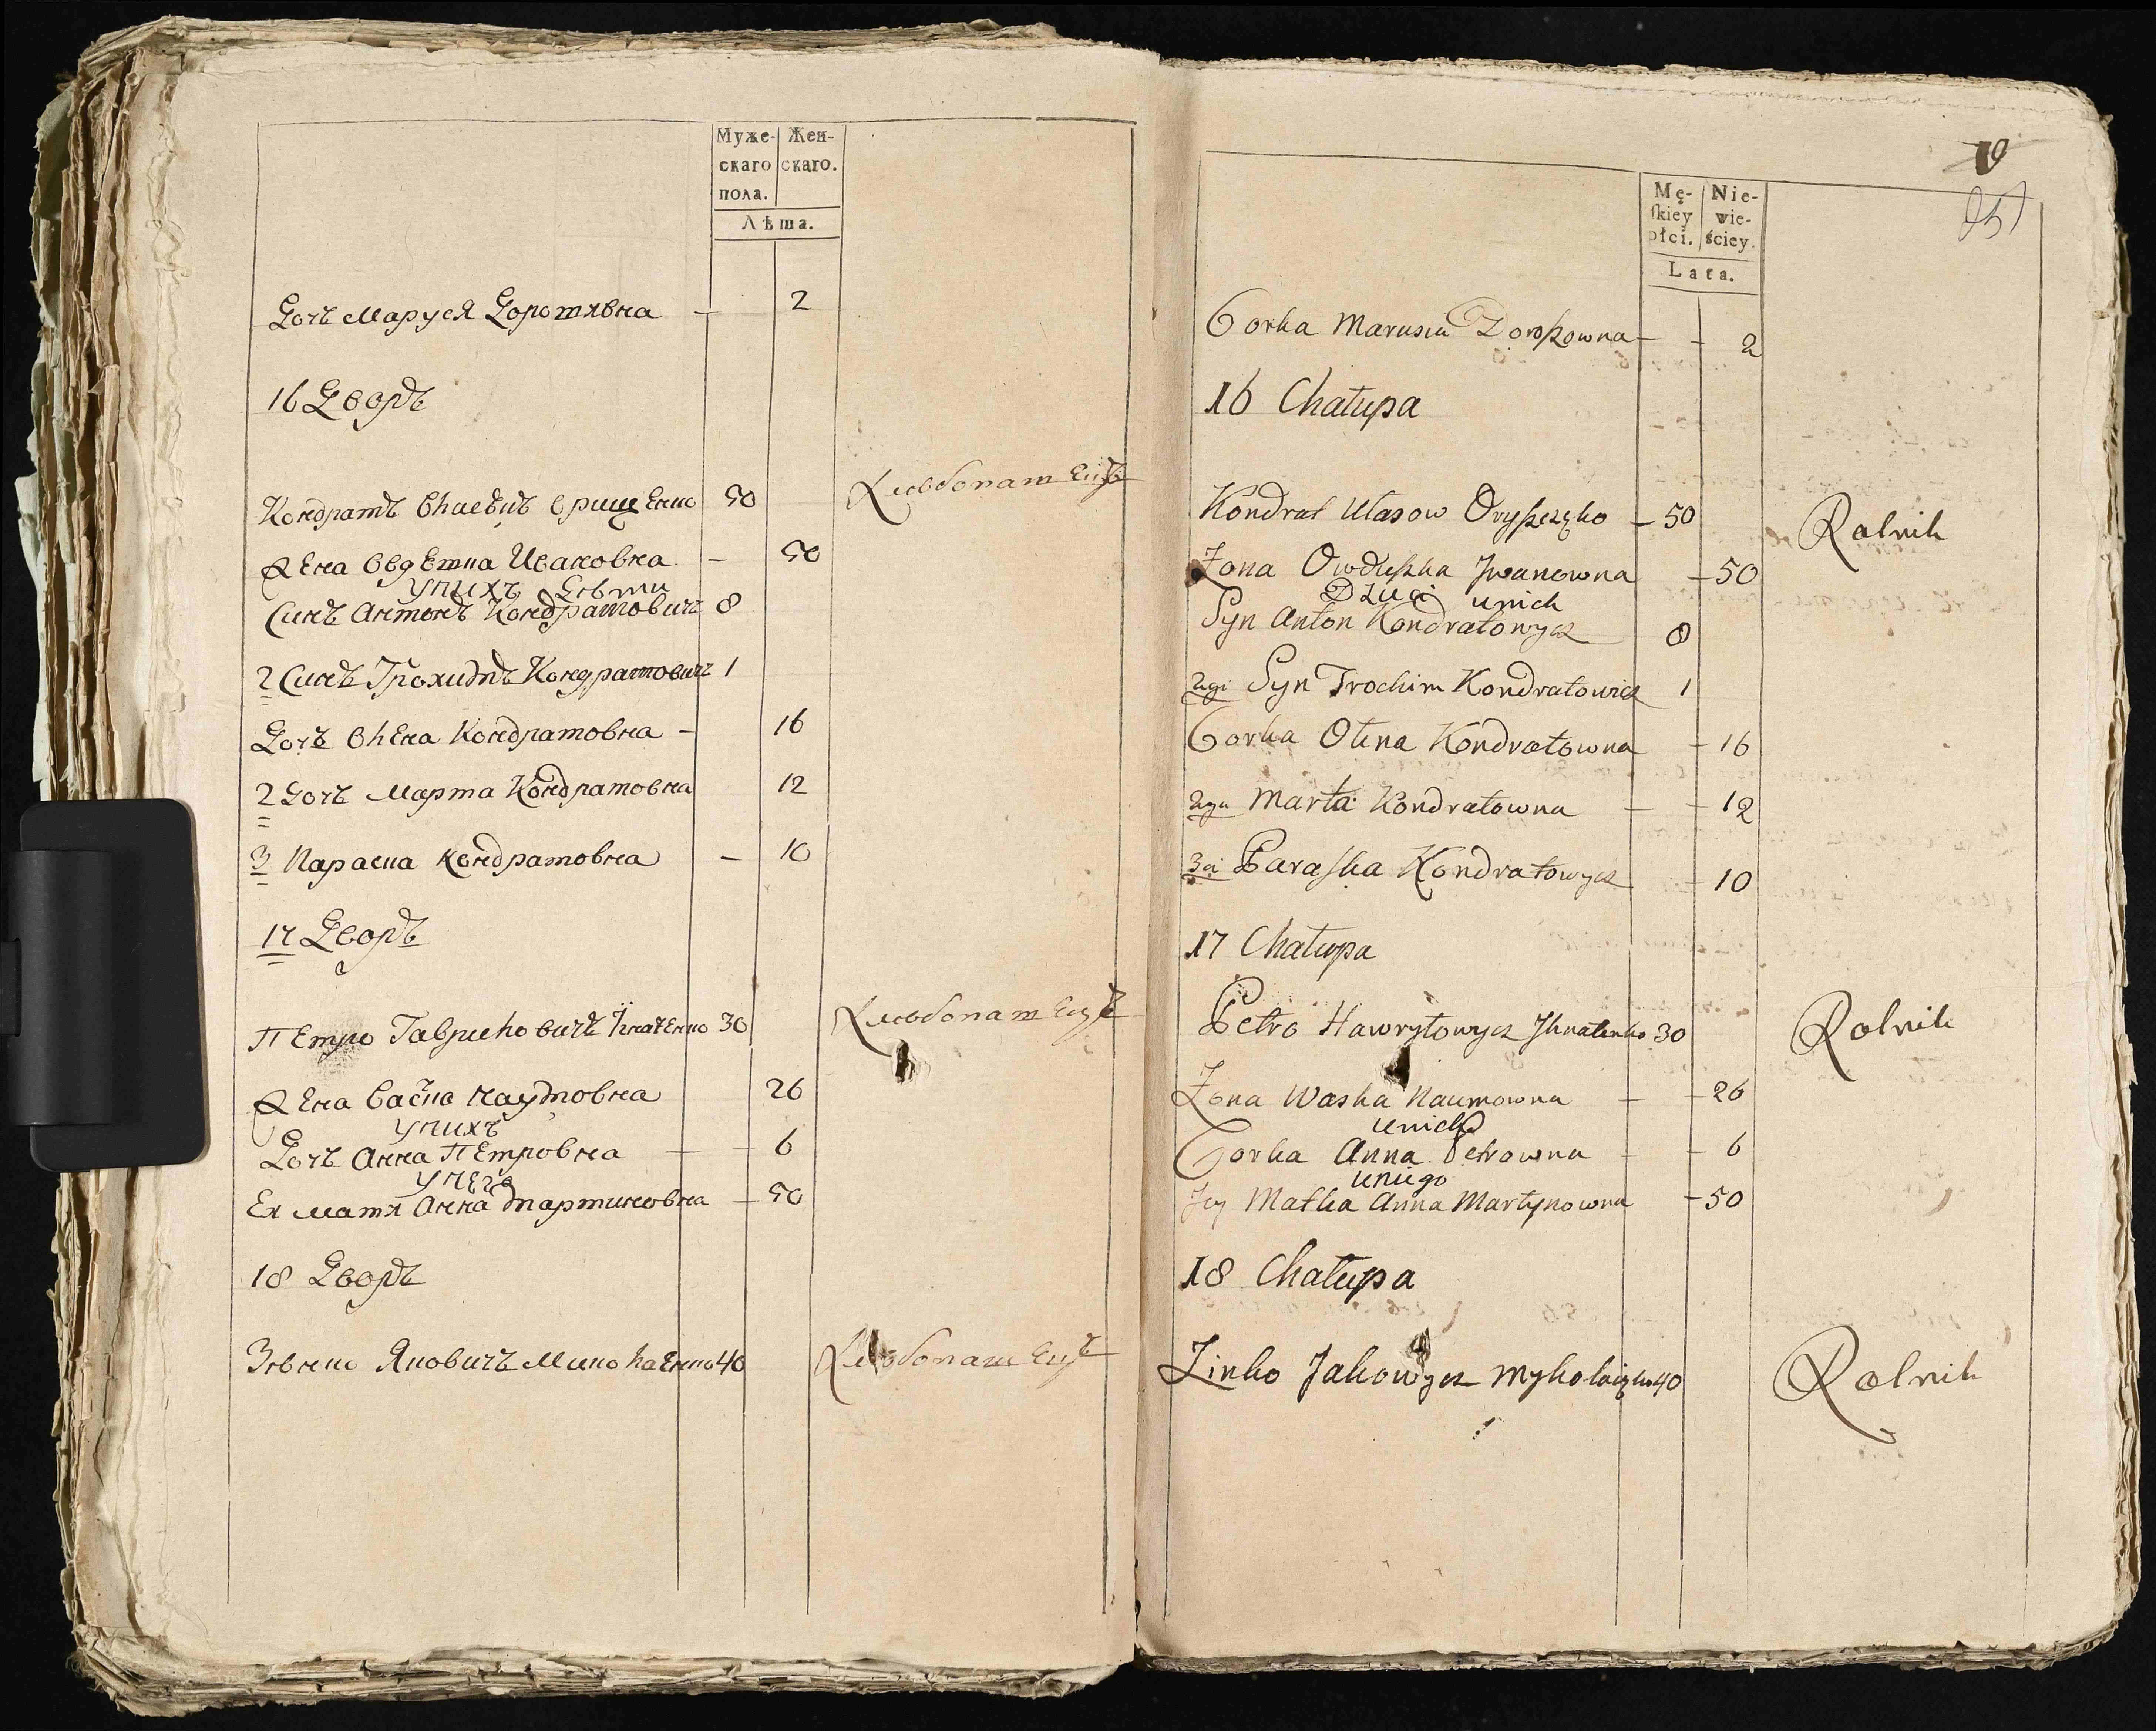 Муже-
скаго
пола.
Жен-
скаго.
Лѣта.
Дочъ Маруся Доротявна — 2
16 Дворъ
Кондратъ Власовъ Орищенко 50 Хлѣбопашецъ
Жена Овдетка Ивановна — 50
У нихъ дѣти
Синъ Антонъ Кондратовичъ 8
2 Синъ Трохимъ Кондратовичъ 1
Дочъ Олена Кондратовна — 16
2 Дочъ Марта Кондратовна 12
3 Параска Кондратовна — 10
17 Дворъ
Петро Гаврилович Ігнатенко 30 Хлѣбопашецъ
Жена Васка Наумовна 26
У нихъ
Дочъ Анна Петровна — 6
У него
Ея матя Анна Мартиновна — 50
18 Дворъ
Зѣнко Яковичъ Миколаенко 40 Хлѣбопашецъ
Mę-
skiey
płci.
Nie-
wie-
ściey.
Lata.
Corka Marusia — — 2
16 Chałupa
Kondrat Ułasow Oryszczęko — 50 Rolnik
Zona Owduszka Jwanowna — 50
Dzieci u nich
Syn Anton Kondratowycz 8
2gi Syn Trochim Kondratowicz 1
Corka Ołena Kondratowna — 16
2ga Marta Kondratowna — — 12
3cia Paraska Kondratowycz — 10
17 Chałupa
Petro Hawryłowycz Jhnatenko 30 Rolnik
Zona Waska Naumowna — — 26
u nich
Corka Anna Petrowna — — 6
u niego
Jey Matka Anna Martynowna — 50
18 Chałupa
Zinko Jakowycz Mykołaięko 40 Rolnik